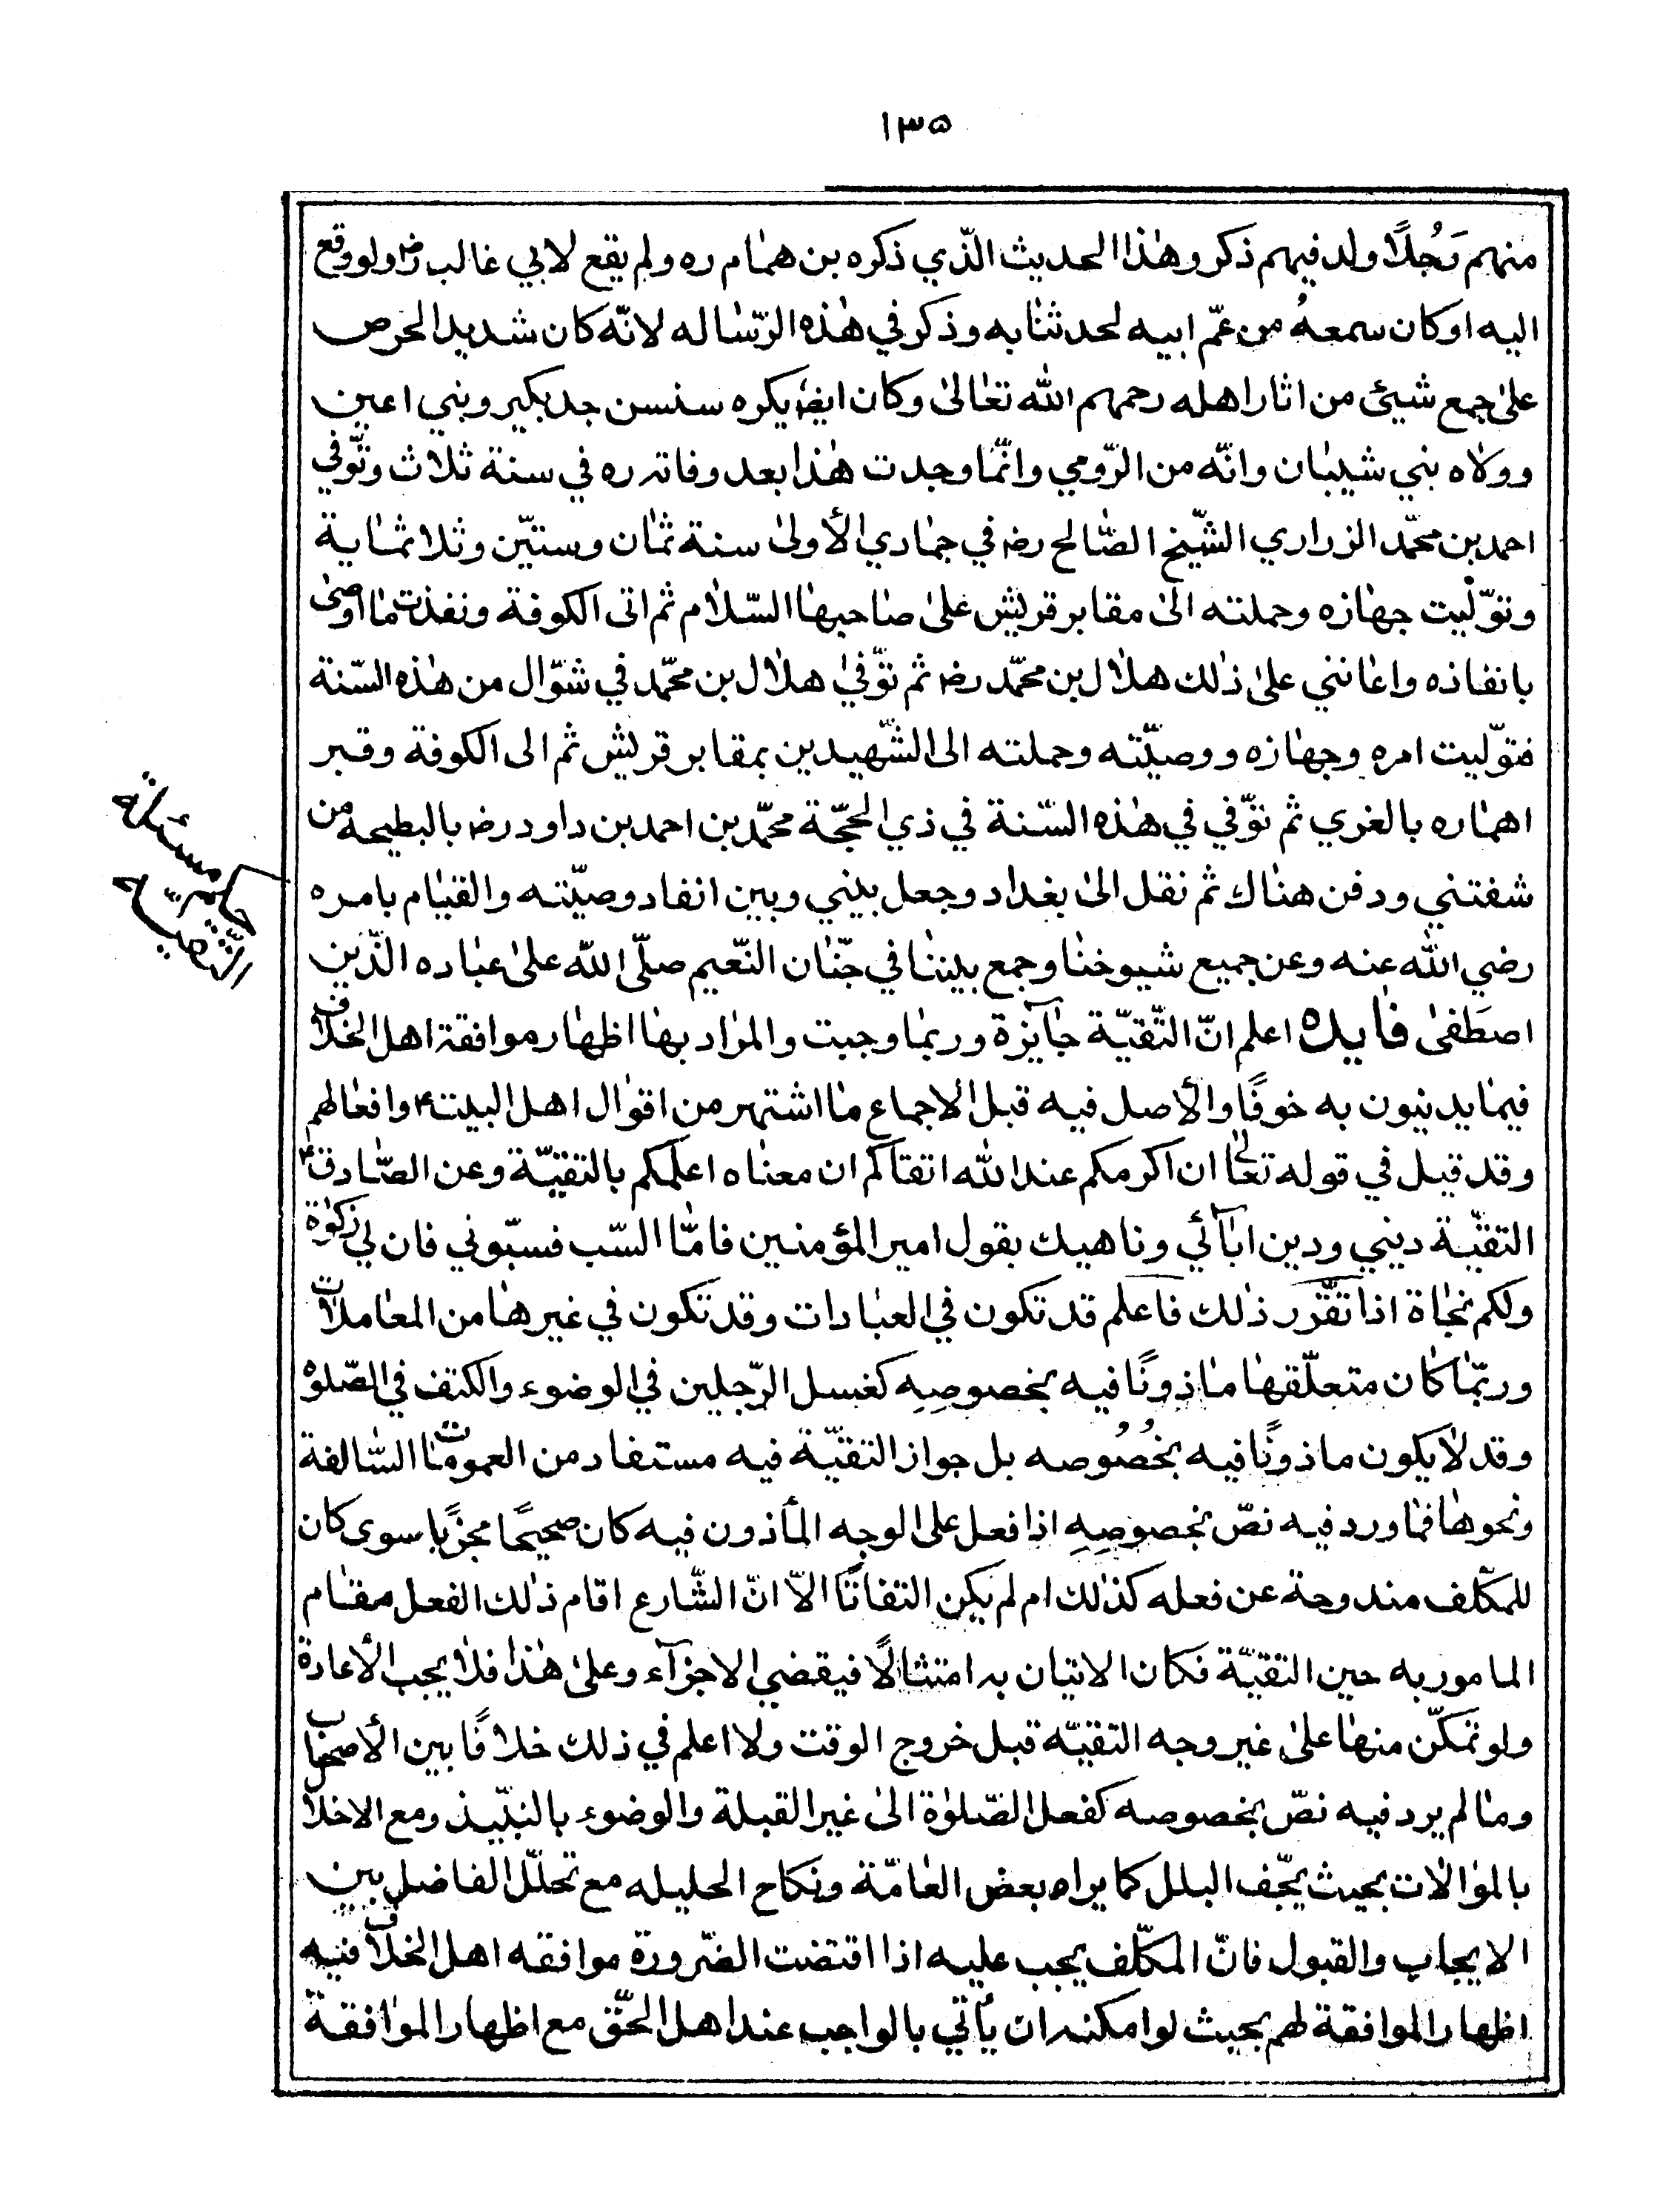 ١٣٥
منهم رَجُلًا ولد فيهم ذكر وهٰذا الحديث الّذي ذكره بن همٰام ره ولم يقع لابي غالب رض ولو وقع
اليه او كان سمعهُ من عمّ ابيه لحدثنٰا به وذكر في هٰذه الرّسٰاله لانّه كان شديد الحرص
علىٰ جمع شيئ من اثار اهله رحمهم اللّٰه تعٰالىٰ وكان ايضٰ يكره سنسن جد بكير وبني اعين
وولاٰه بني شيبٰان وانّه من الرّومي وانّمٰا وجدت هٰذا بعد وفاته ره في سنة ثلاٰث وتّوفي
احمد بن محمّد الزراري الشّيخ الصّٰالح رضه في جمٰادي الأولىٰ سنة ثمٰان وستيّن وثلاثمٰاية
وتوّليت جهٰازه وحملته الىٰ مقابر قريش علىٰ صٰاحبهٰا السّلاٰم ثم اتى الكوفة ونفذت مٰا اوصىٰ
بانفٰاذه واعٰانني علىٰ ذٰلك هلاٰل بن محمّد رضه ثم توّفيٰ هلاٰل بن محمّد في شوّال من هٰذه السّنة
فتوّليت امره وجهٰازه ووصيّته وحملته الى الشّهيدين بمقابر قريش ثم الى الكوفة وقبر
اهمٰاره بالغري ثم توّفي في هٰذه السّنة في ذي الحجّة محمّد بن احمد بن داود رضه بالبطيحه من
شفتني ودفن هنٰاك ثم نقل الىٰ بغداد وجعل بيني وبين انفاد وصيّته والقيٰام بامره
رضي اللّٰه عنه وعن جميع شيوخنٰا وجمع بيننٰا في جنّٰان النّعيم صلّى اللّٰه علىٰ عبٰاده الّذين
اصطَفىٰ فٰايده اعلم انّ التّقيّة جٰآيزة وربمٰا وجبت والمرٰاد بهٰا اظهٰار موافقة اهل الخلاف
فيمٰا يدنيون به خوفًا والأصل فيه قبل الاجماع مٰا اشتهر من اقوٰال اهل البيت ع وافعٰالهم
وقد قيل في قوله تعٰالىٰ ان اكرمكم عند اللّٰه اتقٰاكم ان معنٰاه اعلمكم بالتقيّة وعن الصّٰادق ع
التقيّة ديني ودين ابٰآئي وناهيك بقول امير المؤمنين فامّٰا السّب فسبّوني فان لي زكوٰة
ولكم نجٰاة اذا تقرّر ذٰلك فاعلم قد تكون في العبٰادات وقد تكون في غيرهٰا من المعٰاملات
وربّمٰا كٰان متعلّقهٰا مٰاذونًا فيه بخصوصِهِ كغسل الرّجلين في الوضوء والكتف في الصّلوٰة
وقد لاٰ يكون ماذونًا فيه بخُصُوصه بل جواز التقيّة فيه مستفٰاد من العمومٰات السّٰالفة
ونحوهٰا فمٰا ورد فيه نصّ بخصوصِهِ اذا فعل على الوجه المأذون فيه كان صحيحًا مجزيًا سوى كان
للمكّلف مندوحة عن فعله كذٰلك ام لم يكن التفاتًا الاّ انّ الشّارع اقام ذٰلك الفعل مقٰام
المامور به حين التقيّة فكان الاتيان به امتثالًا فيقضي الاجزآء وعلىٰ هٰذا فلاٰ يجب الأعادة
ولو تمكّن منهٰا علىٰ غير وجه التقيّة قبل خروج الوقت ولا اعلم في ذلك خلافًا بين الأصحاب
ومٰا لم يرد فيه نصّ بخصوصه كفعل الصّلوٰة الىٰ غير القبلة والوضوء بالنبّيذ ومع الاخلال
بالموٰالاٰت بحيث يجّف البلل كما يراه بعض العٰامّة ونكاح الحليله مع تحلّل الفاضل بين
الايجاب والقبول فانّ المكّلف يجب عليه اذا اقتضت الضّرورة موافقه اهل الخلاف فيه
اظهار الموافقة لهم بحيث لو امكنه ان يأتي بالواجب عند اهل الحّق مع اظهار الموٰافقة
مسئلة
التقيّة